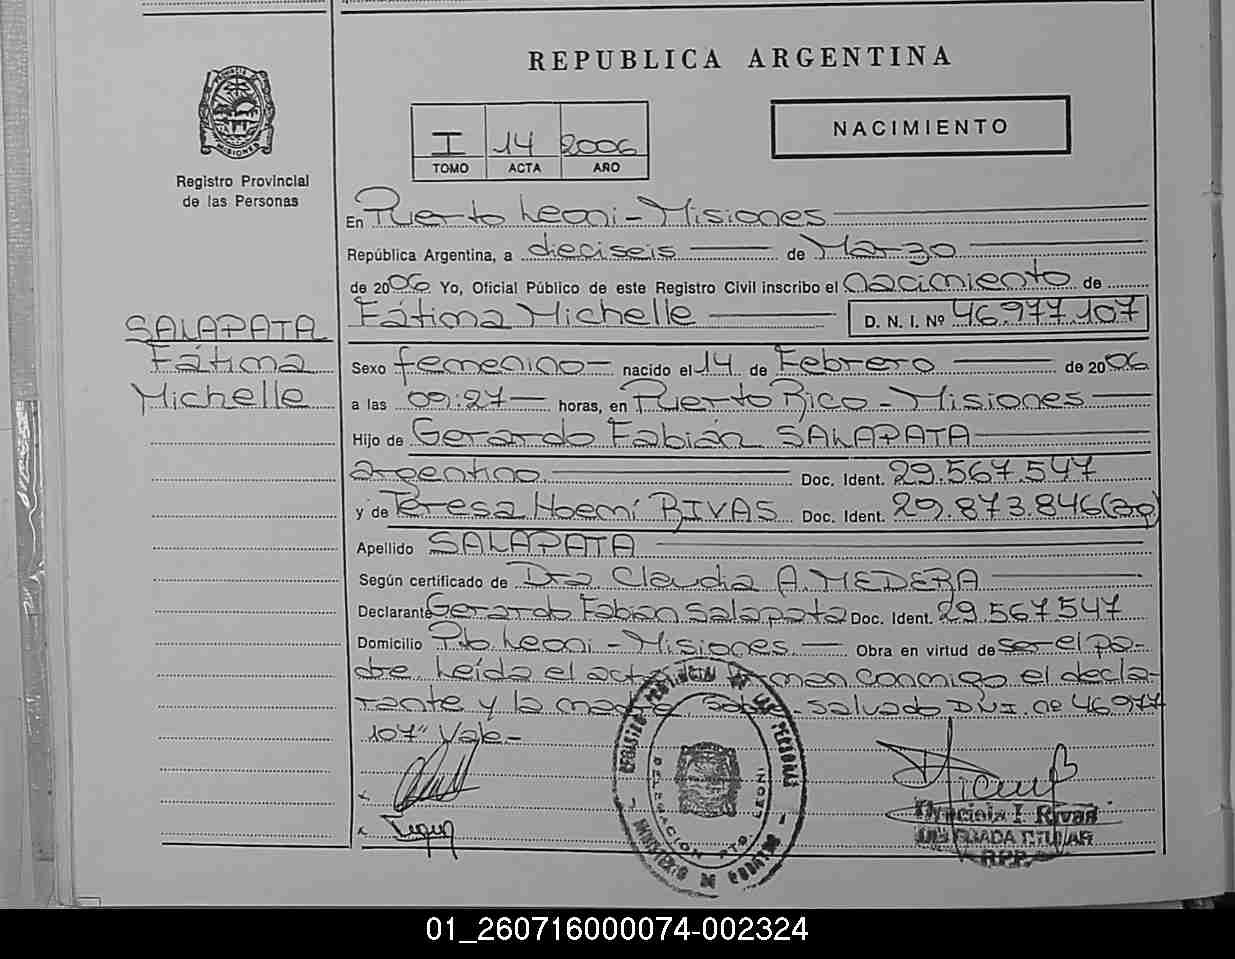 REPUBLICA ARGENTINA
PROVINCIA DE MISIONES
Registro Provincial
de las Personas
I 14 2006
TOMO ACTA AÑO
NACIMIENTO
En Puerto Leoni - Misiones
República Argentina, a dieciseis de Marzo
de 2006 Yo, Oficial Público de este Registro Civil inscribo el nacimiento de
Fátima Michelle D. N. I. Nº 46.977.107
SALAPATA
Fátima
Michelle
Sexo femenino nacido el 14 de Febrero de 2006
a las 09:27 horas, en Puerto Rico - Misiones
Hijo de Gerardo Fabián SALAPATA
argentino Doc. Ident. 29.567.547
y de Teresa Noemí RIVAS Doc. Ident. 29.873.846(ag)
Apellido SALAPATA
Según certificado de Dra Claudia A. MEDERA
Declarante Gerardo Fabian Salapata Doc. Ident. 29.567.547
Domicilio Pto Leoni - Misiones Obra en virtud de ser el pa-
dre Leída el acta conmigo el decla-
rante y la madre Sobre-salvado D.N.I. nº 46977
107" Vale -
REGISTRO PROVINCIAL DE LAS PERSONAS
DELEGACION PTO. LEONI
MINISTERIO DE GOBIERNO
I. Rivas
TITULAR
R.P.P.
01_260716000074-002324